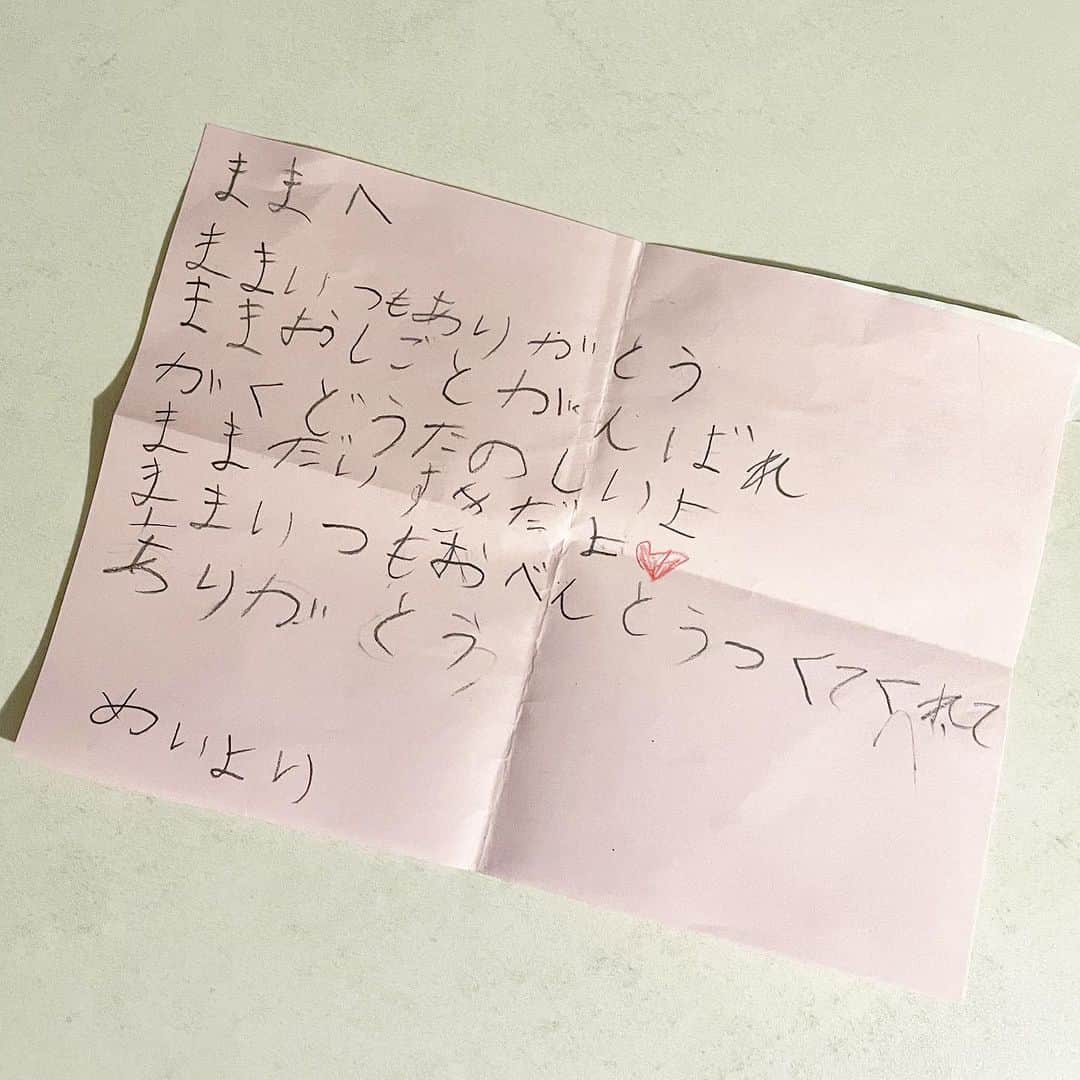 ままへ
ままいつもありがとう
ままおしごとがんばれ
がくどうたのしいよ
ままだいすきだよ
ままいつもおべんとうつくてくれて
ありがとう
めいより